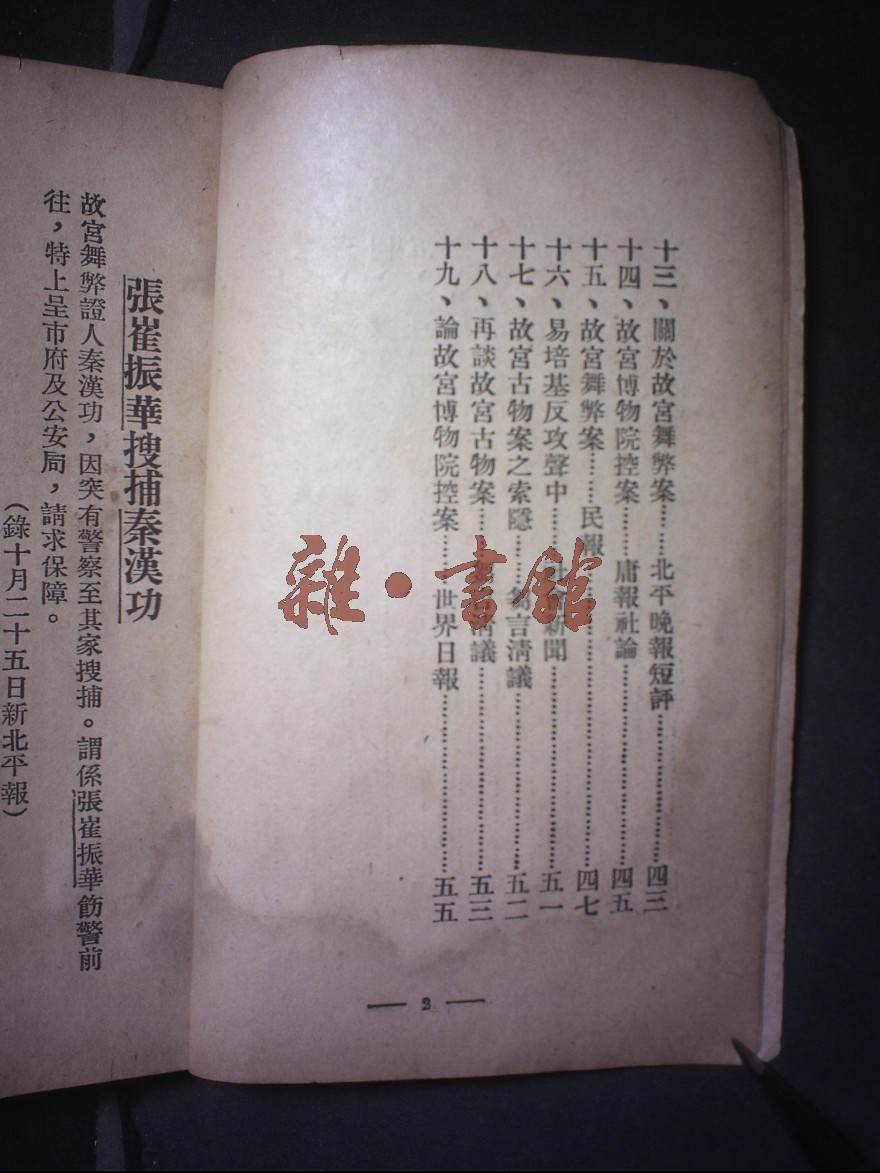 十三、關於故宮舞弊案……北平晚報短評……四三
十四、故宮博物院控案……庸報社論……四五
十五、故宮舞弊案……民報……四七
十六、易培基反攻聲中……新聞……五一
十七、故宮古物案之索隱……芻言清議……五二
十八、再談故宮古物案……清議……五三
十九、論故宮博物院控案……世界日報……五五
— 2 —
張崔振華搜捕秦漢功
故宮舞弊證人秦漢功，因突有警察至其家搜捕。謂係張崔振華飭警前
往，特上呈市府及公安局，請求保障。
（錄十月二十五日新北平報）
雜·書館